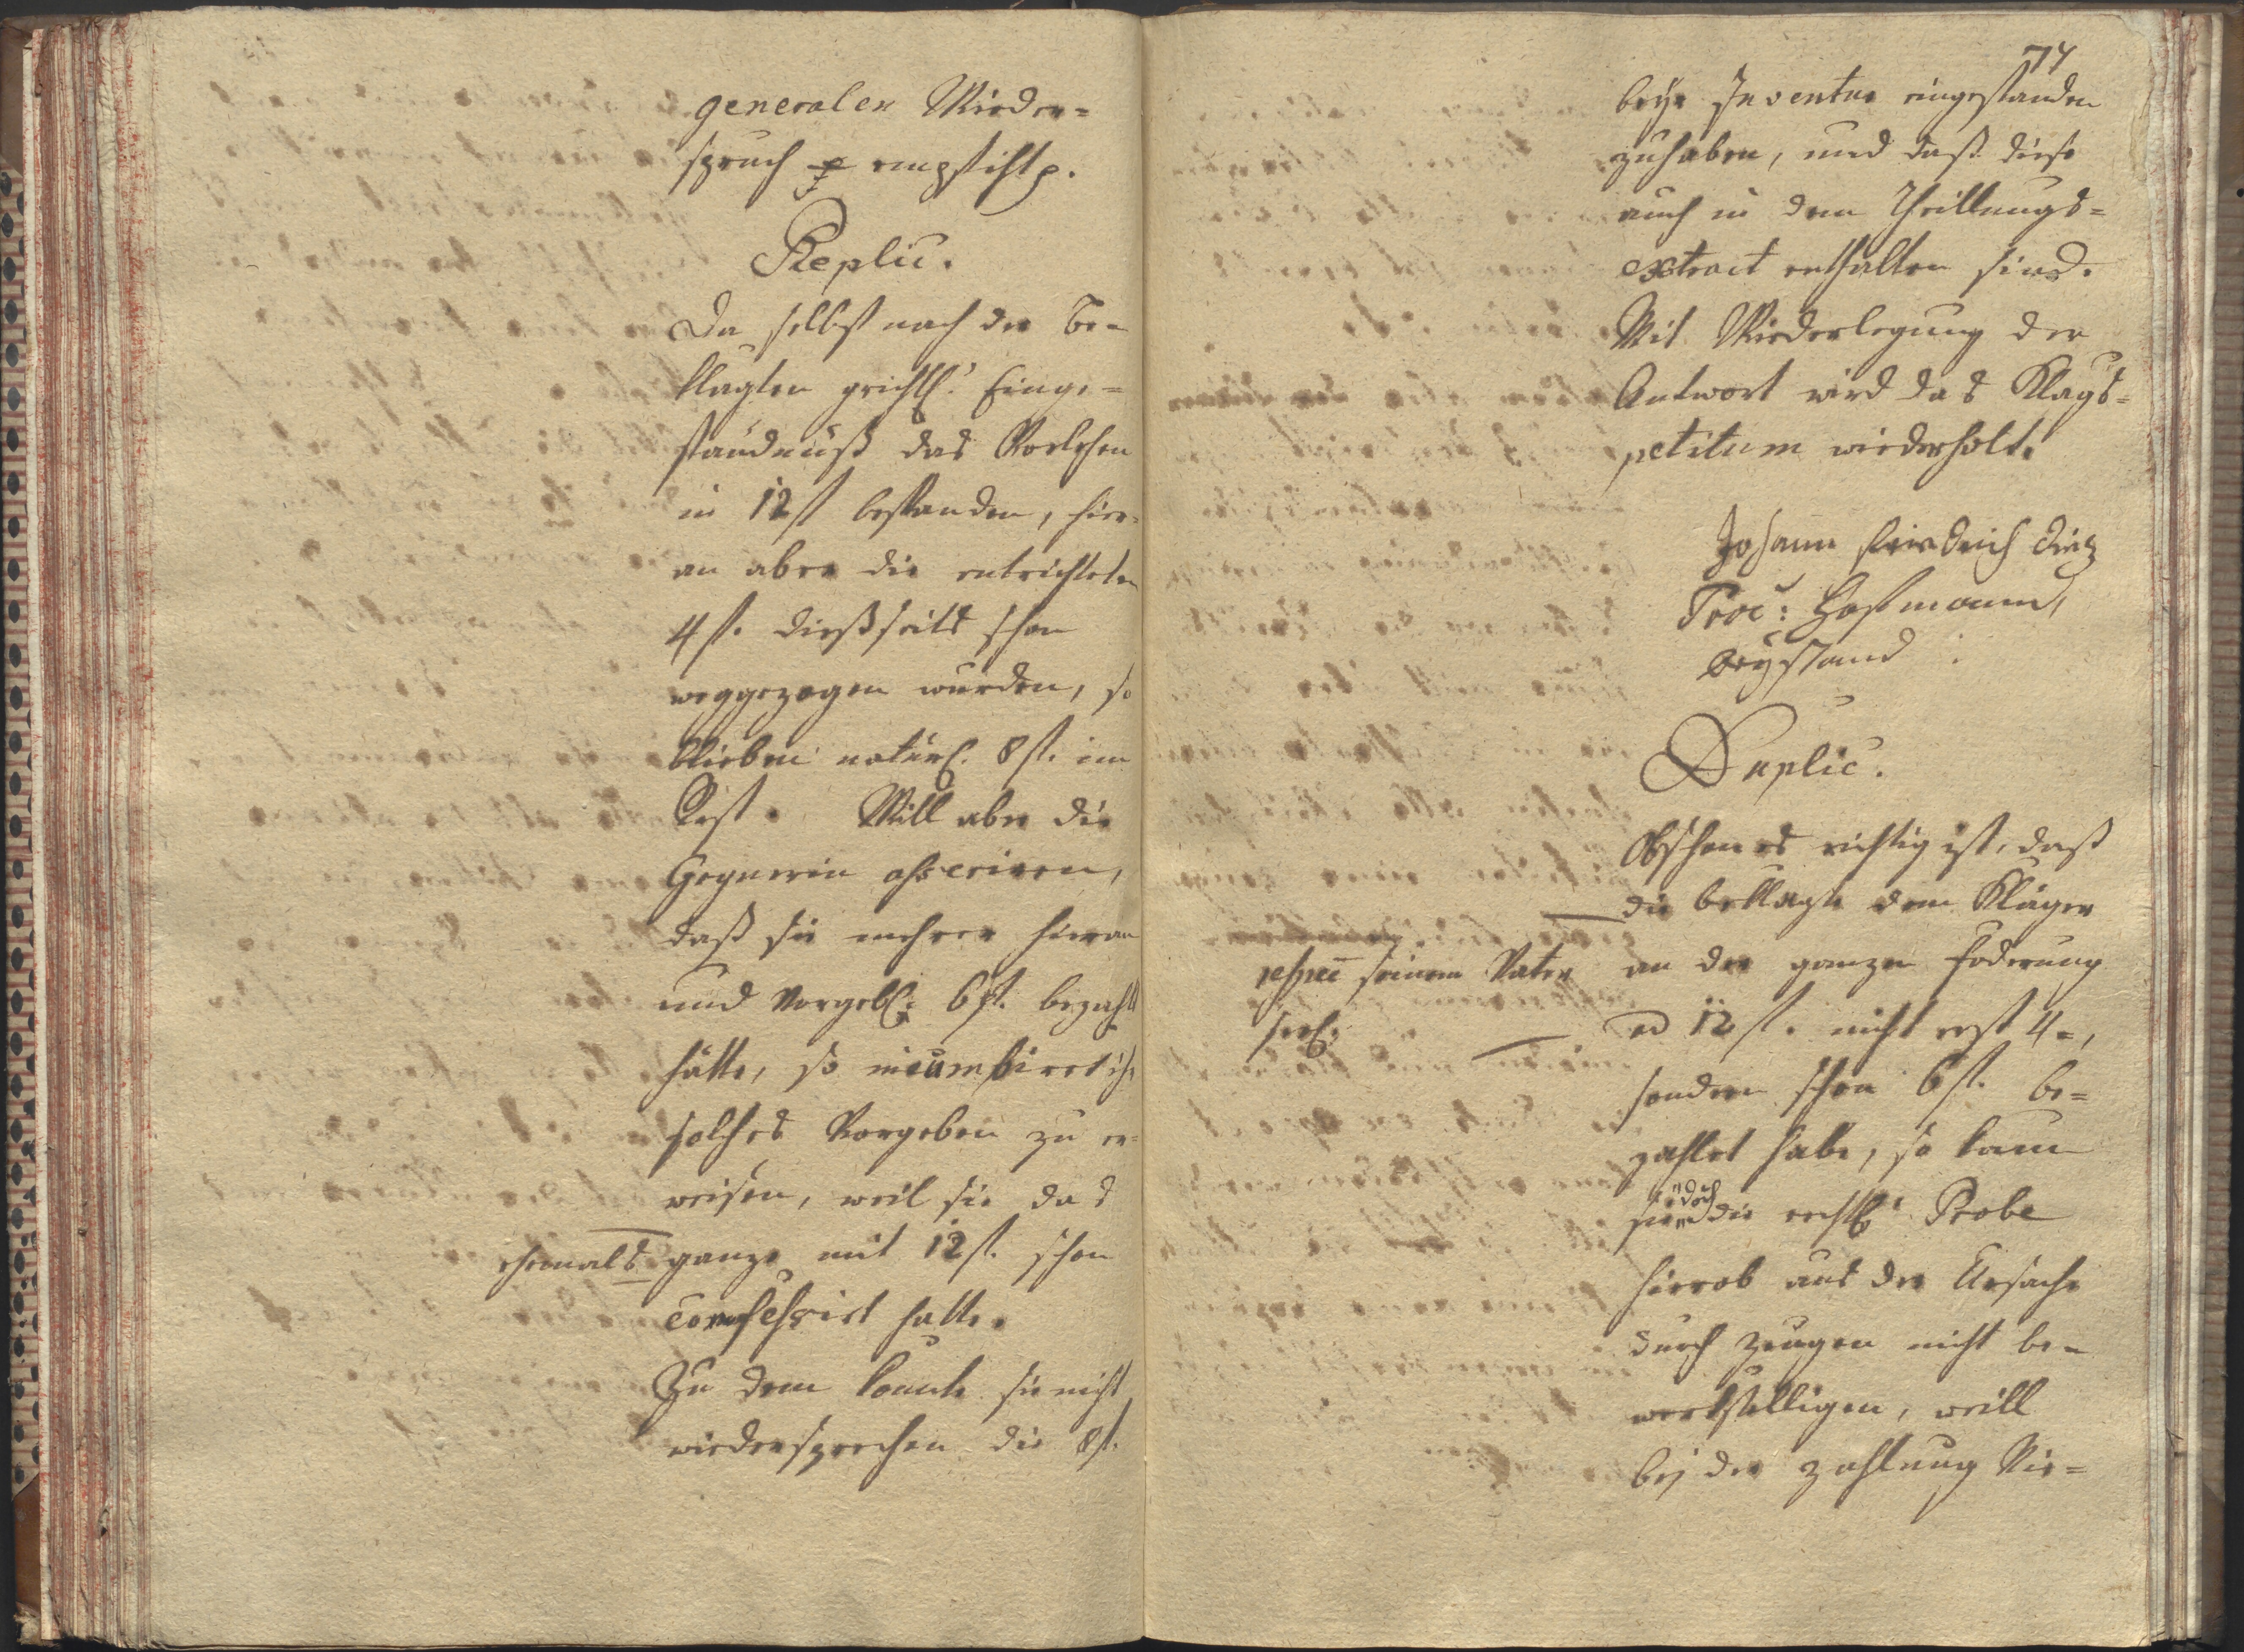 generalen Wieder=
spruch empfihlt.
Replic.
Da selbst nach der Be=
klagten grichtl: Einge=
ständnuß das Vorlehen
in 12 fl bestanden, hier=
an aber die entrichteten
4 fl. dießseits schon
weggezogen wurden, so
blieben natürl. 8 fl. im
Rest. Will aber die
Gegnerin asseriren,
daß sie mehrer hieran
und vorgebl: 6 fl. bezahlt
hätte, so incumbiret ihr
solches Vorgeben zu er=
weisen, weil sie das
ehemals ganze mit 12 fl. schon
confessirt hatte.
Zu dem konte sie nicht
wiedersprechen die 8 fl.
74
beÿr Inventur eingestanden
zuhaben, und daß diese
auch in dem Theillungs=
extract enthalten sind.
Mit Wiederlegung der
Antwort wird das Klags=
petitum wiederholt.
Johann Friedrich Dietz
Proc: Hofmann,
beÿstand
Duplic.
Obschon es richtig ist, daß
die beklagte dem Kläger
respec seinem Vater
seel:
an der ganzen Foderung
ad 12 fl. nicht erst 4=,
sondern schon 6 fl. be=
zahlet habe, so kann
sie doch die rechtl: Probe
hierob aus der Ursache
durch Zeugen nicht be=
werkstelligen, weill
beÿ der zahlung Nie=